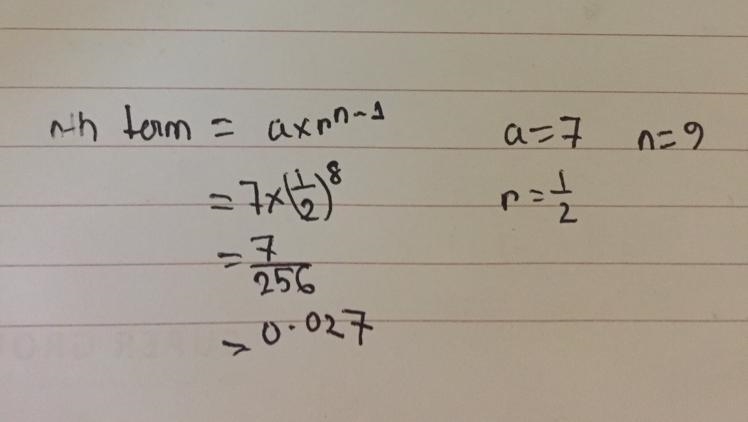 nth term = a×r^(n-1) a=7 n=9
= 7×(1/2)^8 r=1/2
= 7/256
= 0.027